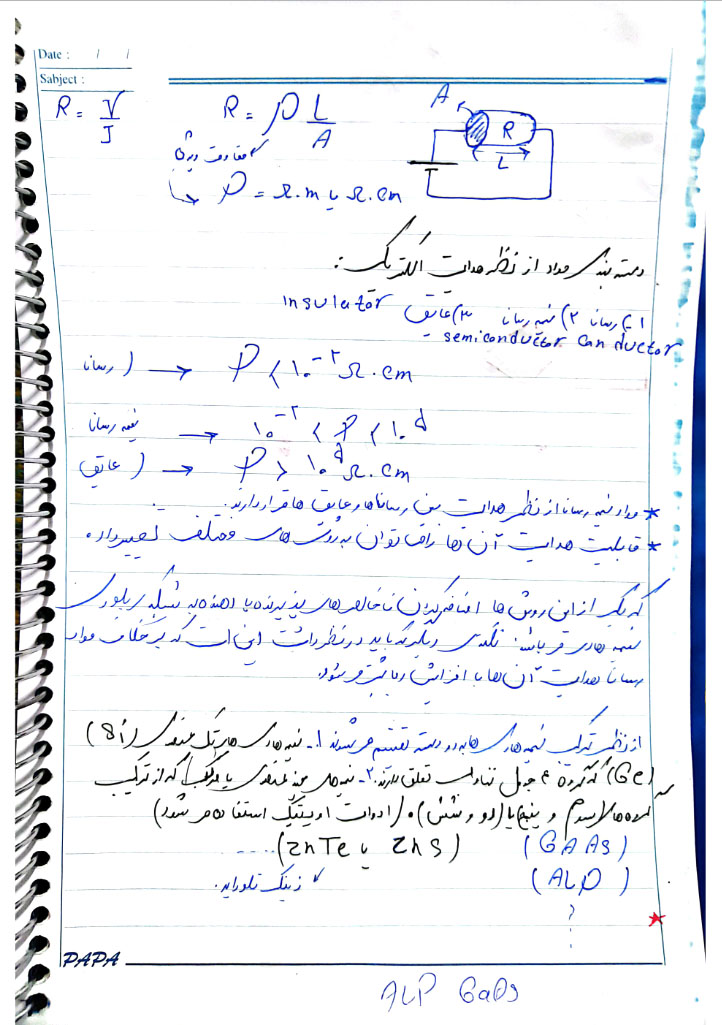 Date : / /
Subject :
R = V/I
R = ρ L/A
A
R
L
مقاومت ویژه
ρ = Ω.m یا Ω.cm
دسته بندی مواد از نظر هدایت الکتریکی :
۱) رسانا ۲) نیمه رسانا ۳) عایق insulator
semiconductor canductor
رسانا) → ρ < ۱۰⁻² Ω.cm
نیمه رسانا → ۱۰⁻² < ρ < ۱۰⁵
عایق) → ρ > ۱۰⁵ Ω.cm
* مواد نیمه رسانا از نظر هدایت بین رساناها و عایق ها قرار دارند.
* قابلیت هدایت آن ها را می توان به روش های مختلف تغییر داد.
که یکی از این روش ها اضافه کردن ناخالصی های پذیرنده یا دهنده به شبکه بلوری
نیمه هادی می باشد. نکته ی دیگر که باید در نظر داشت این است که بر خلاف مواد
رسانا هدایت آن ها با افزایش دما بیشتر می شود.
از نظر ترکیب نیمه هادی ها به دو دسته تقسیم می شوند ۱- نیمه هادی های تک عنصری (Si)
(Ge) که گروه ۴ جدول تناوبی تعلق دارند. ۲- نیمه هادی چند عنصری یا مرکب که از ترکیب
گروه ها سوم و پنجم یا (دو و شش). (ادوات اوپتیک استفاده می شود)
(GAAs) (ZnS یا ZnTe) ....
(ALP) زینک تلوراید.
?
PAPA
ALP GaAs